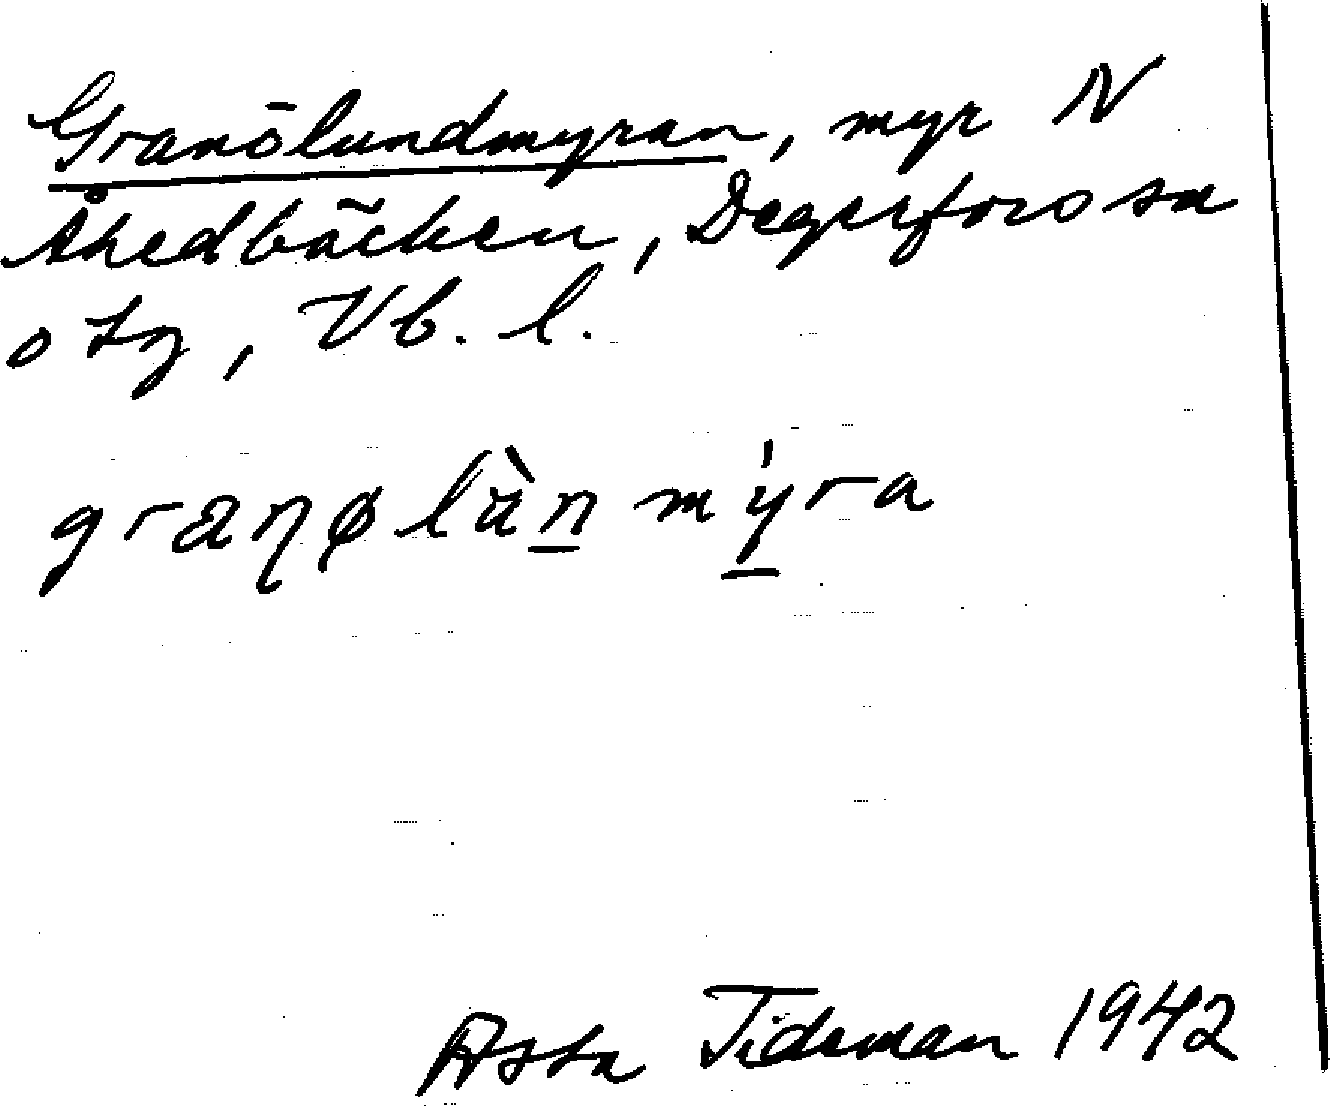 Granölundmyran, myr N
Åhedbäcken, Degerfors sn
o tg, Vb. l.
granølùn mýra
Asta Tideman 1942